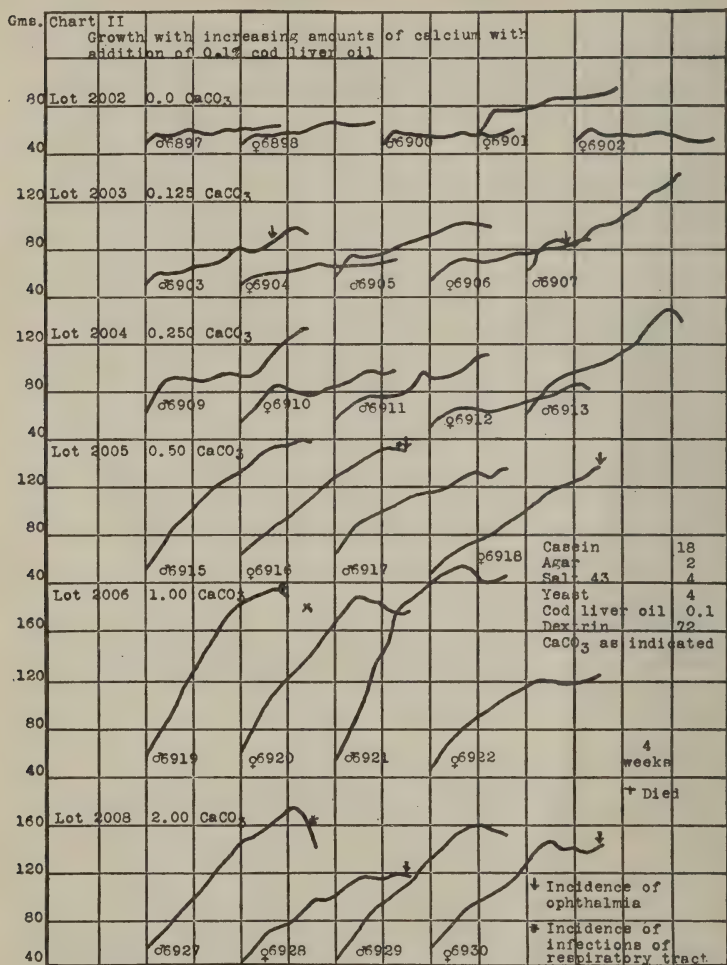 Gms. Chart II
Growth with increasing amounts of calcium with
addition of 0.1% cod liver oil
80 Lot 2002 0.0 CaCO3
40 ♂6897 ♀6898 ♂6900 ♀6901 ♀6902
120 Lot 2003 0.125 CaCO3
80
40 ♂6903 ♀6904 ♂6905 ♀6906 ♂6907
120 Lot 2004 0.250 CaCO3
80 ♂6909 ♀6910 ♂6911 ♀6912 ♂6913
40
Lot 2005 0.50 CaCO3
120
80 ♂6915 ♀6916 ♂6917 ♀6918
40
Casein 18
Agar 2
Salt 43 4
Yeast 4
Cod liver oil 0.1
Dextrin 72
CaCO3 as indicated
Lot 2006 1.00 CaCO3
160
120
80 ♂6919 ♀6920 ♂6921 ♀6922
40
4
weeks
† Died
160 Lot 2008 2.00 CaCO3
120
80
40 ♂6927 ♀6928 ♂6929 ♀6930
↓ Incidence of
ophthalmia
* Incidence of
infections of
respiratory tract